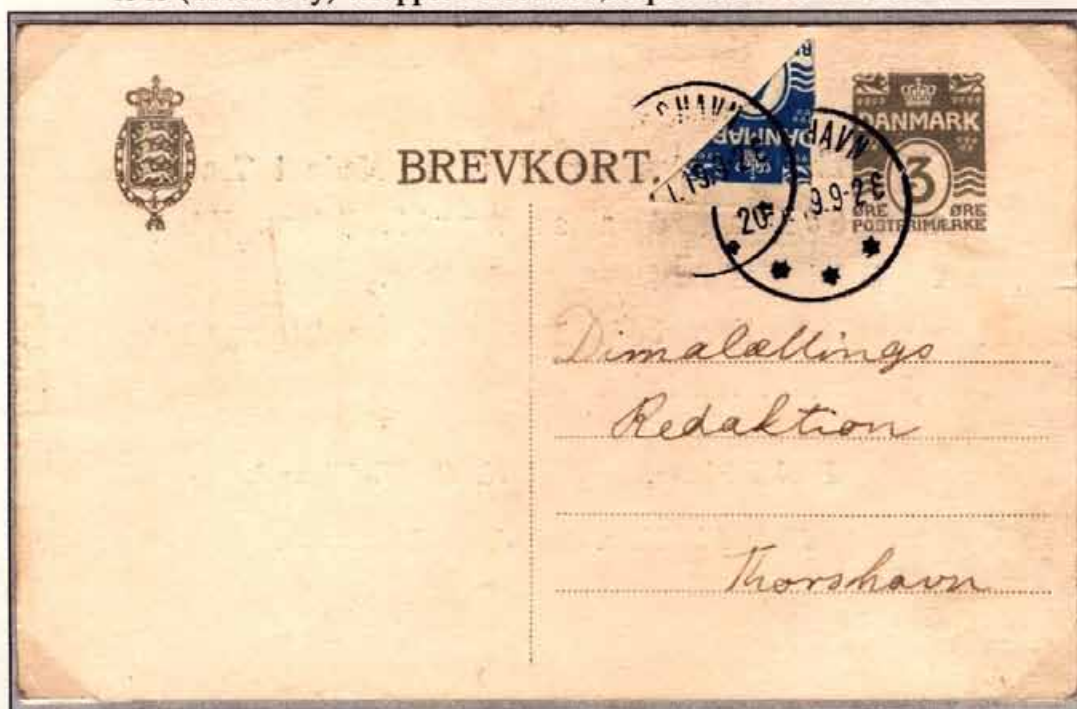 BREVKORT.
DANMARK
3
ØRE ØRE
POSTFRIMÆRKE
DANMAR
HAVN
HAVN
9.9-2E
Dimalættings
Redaktion
Thorshavn